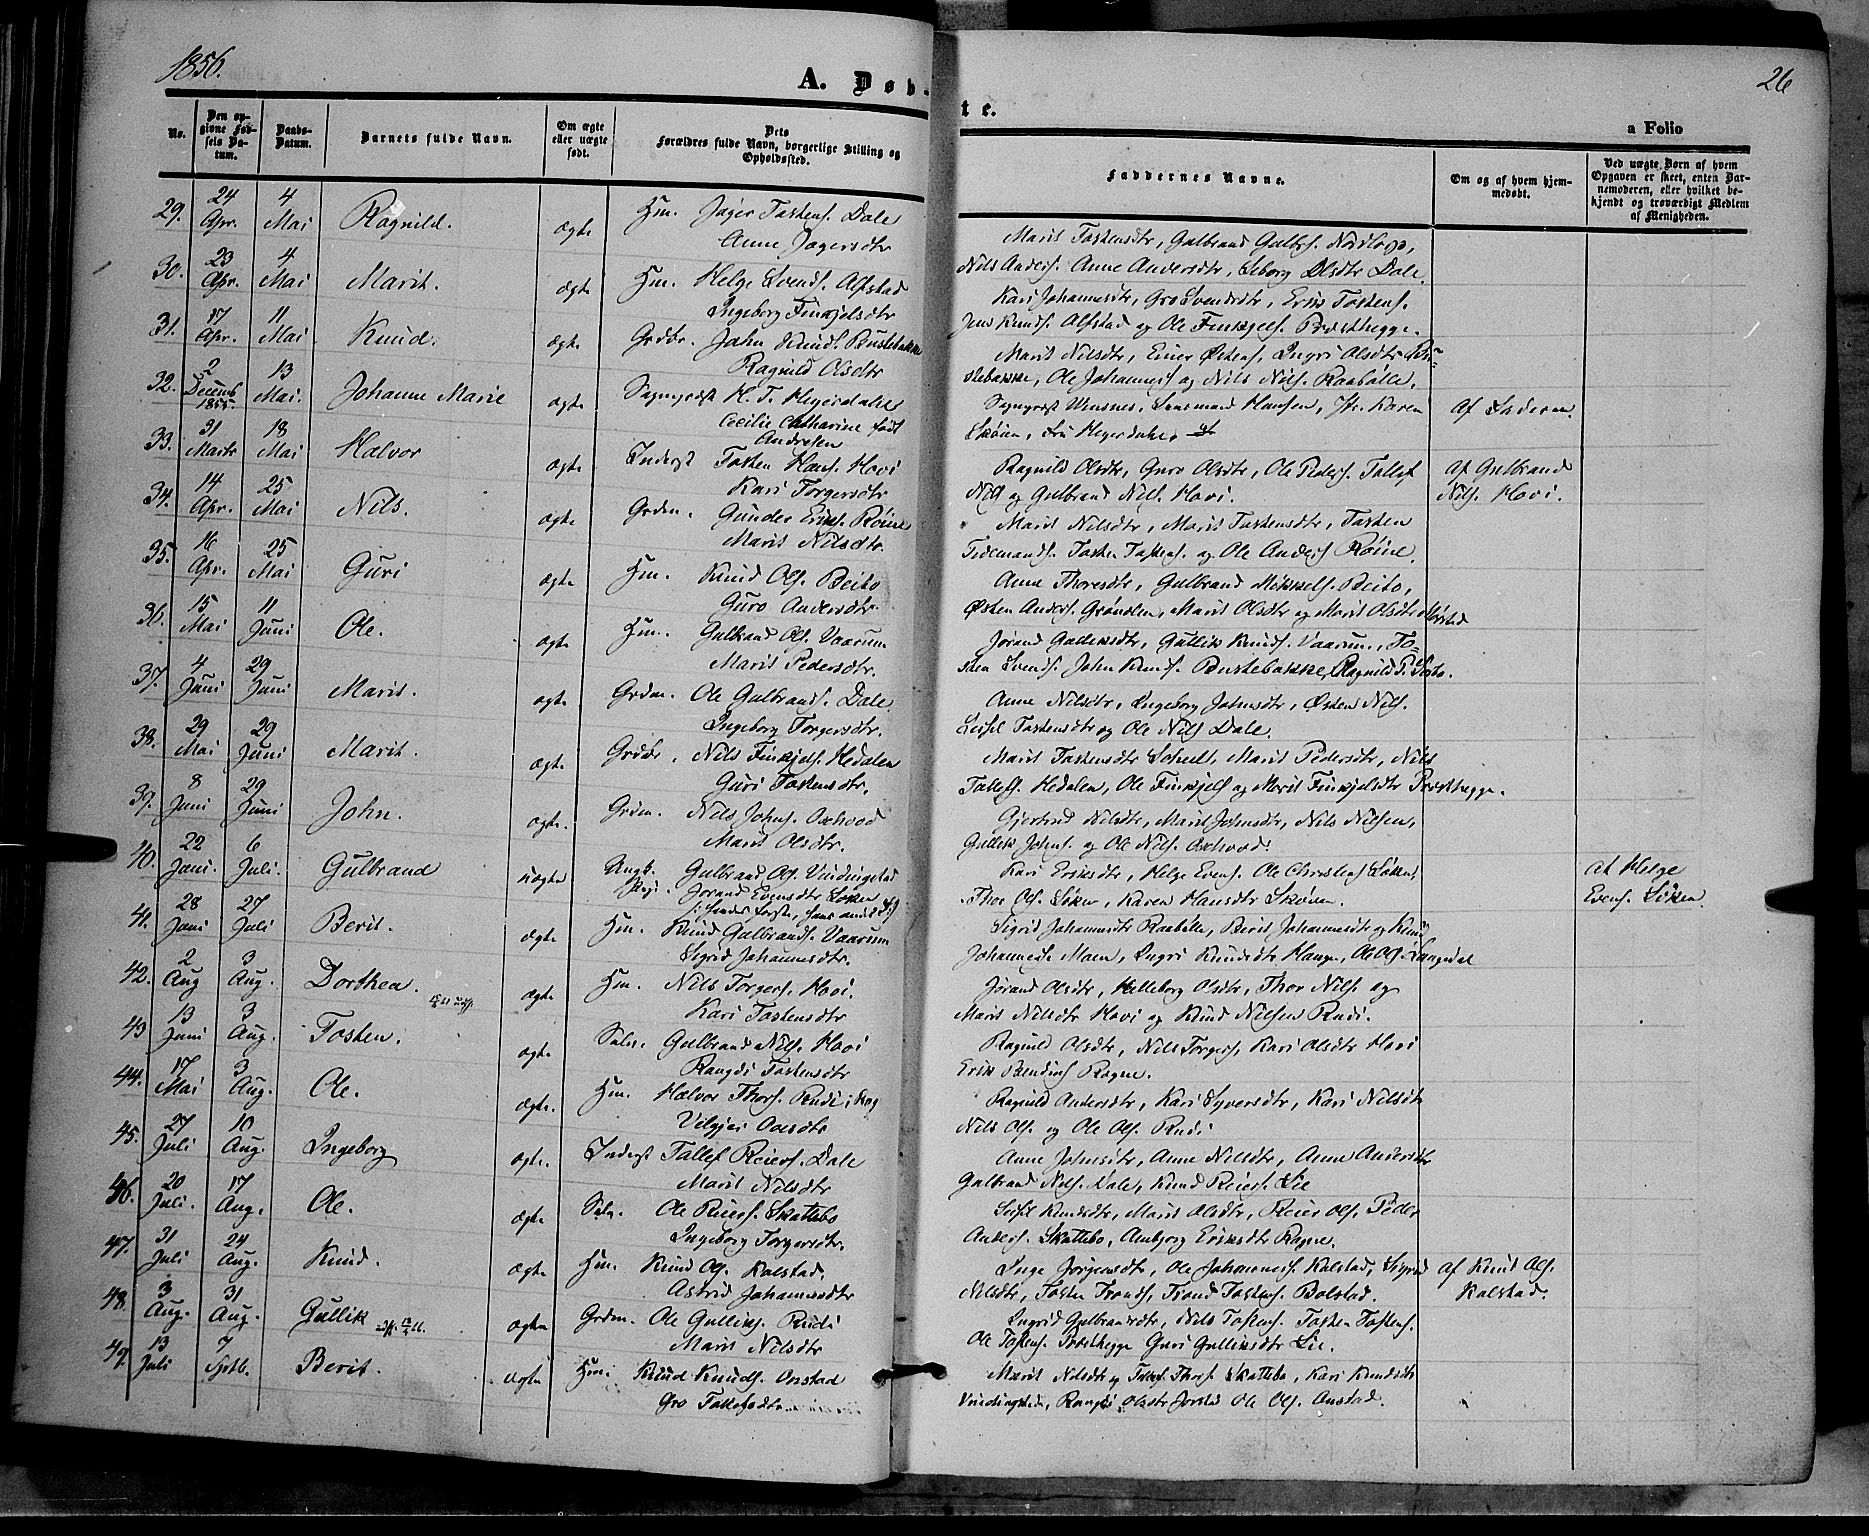 1856.
A. Døb-
te.
26
a Folio
No.
Den op-
givne Fød-
sels Da-
tum.
Daabs-
Datum.
Barnets fulde Navn.
Om ægte
eller uægte
født.
Dets
Forældres fulde Navn, borgerlige Stilling og
Opholdssted.
Faddernes Navne.
Om og af hvem hjem-
medøbt.
Ved uægte Børn af hvem
Opgaven er skeet, enten Bar-
nemoderen, eller hvilket be-
kjendt og troværdigt Medlem
af Menigheden.
29. 24 Apr. 4 Mai Ragnild. ægte Hm. Jøger Tostens. Dale
Anne Jøgersdtr
Marit Tostensdtr, Gulbrand Gulbrs.
Nils Anders. Anne Andersdtr, Olsdtr Dale.
30. 23 Apr. 4 Mai Marit. ægte Hm. Helge Svends. Alfstad
Ingeborg Finkjelsdtr
Kari Johannesdtr, Gro Svendsdtr, Erik Tostens.
Jens Knuds. Alfstad og Ole Finkjels. Præsthegge.
31. 17 Apr. 11 Mai Knud. ægte Grdbr. John Knuds. Bustebakke
Ragnild Olsdtr
Marit Nilsdtr, Einer Østens, Ingri Olsdtr Bu-
stebakke, Ole Johanness og Nils Nils. Raabølle.
32. 2 Decemb 1855. 13 Mai. Johanne Marie ægte Sogneprest H. T. Heyerdahl
Cecilie Cathharine født
Andresen
Sogneprest Lensmand Hansen, Karen
Skøien, Fru Heyerdahl.
Af Faderen.
33. 31 Marts 18 Mai Halvor ægte Inderst Tosten Hans. Hovi
Kari Torgersdtr
Ragnild Olsdtr, Guro Olsdtr, Ole Peders. Tollef
Nils og Gulbrand Nils. Hovi.
af Gulbrand
Nils. Hovi.
34. 14 Apr. 25 Mai Nils. ægte Grdm. Gunder Eriks. Røine
Marit Nilsdtr.
Marit Nilsdtr, Marit Tostensdtr, Tosten
Tidemands. Tosten Tostens. og Ole Anders Røine.
35. 16 Apr. 25 Mai Guri ægte Hm. Knud Ols. Beito
Guro Andersdtr
Anne Thoresdtr, Gulbrand Mikkels. Beito,
Østen Anders. Grønolen, Marit Olsdtr og Marit Olsdtr
36. 15 Mai 11 Juni Ole. ægte Hm. Gulbrand Ols. Vaarum
Marit Pedersdtr.
Jørand Gulliksdtr, Gullik Knuds. Vaarum, To-
sten Svends. John Knuds. Bustebakke, Ragnild
37. 4 Juni 29 Juni Marit. ægte Grdm. Ole Gulbrands. Dale
Ingeborg Torgersdtr.
Anne Nilsdtr, Ingeborg Johnsdtr, Østen Nils.
Leisel Tostensdtr og Ole Nils Dale.
38. 29 Mai 29 Juni Marit. ægte Grdbr. Nils Finkjels. Hedalen
Guri Tostensdtr.
Marit Tostensdtr Marit Pedersdtr, Nils
Tollefs. Hedalen, Ole Finkjels og Marit Finkjelsdtr Præsthegge.
39. 8 Juni 29 Juni John. ægte. Grdm. Nils Johns. Oxhovd
Marit Olsdtr.
Gjertrud Nilsdtr, Marit Johnsdtr, Nils Nilsen,
Gullik Johns. og Ole Nils. Oxhovd.
40. 22 Juni. 6 Juli. Gulbrand uægte Ungk. Gulbrand Ols. Vindingstad
Pige. Jørand Evensdtr Løken
/: hendes første, hans andet :/
Kari Eriksdtr, Helge Evens. Ole Christens Løken,
Thor Ols. Løken, Karen Hansdtr Skøien.
at Helge
Evens. Løken.
41. 28 Juni 27 Juli Berit. ægte Hm. Knud Gulbrands. Vaarum
Sigrid Johannesdtr.
Sigrid Johannesdtr Raabølle, Berit Johannesdtr og Knud
Johanness Moen, Ingri Knudsdtr Haugen, Ole Ols.
42. 2 Aug 3 Aug. Dorthea. ægte Hm. Nils Torgers. Hovi.
Kari Tostensdtr
Jørand Olsdtr, Helleborg Olsdtr, Thor Nils. og
Marit Nilsdtr Hovi og Knud Nilsen Rudi.
43 13 Juni 3 Aug. Tosten. ægte Selv. Gulbrand Nils. Hovi
Rangdi Tostensdtr
Ragnild Olsdtr, Nils Torgers, Kari Olsdtr Hovi
Erik Bendiks Rogne.
44. 17 Mai 3 Aug. Ole. ægte. Hm. Halvor Thors. Rudi
Olsdtr
Ragnild Andersdtr, Kari Syversdtr, Kari Nilsdtr
Nils Ols. og Ole Ols. Rudi
45. 27 Juli 10 Aug. Ingeborg ægte. Inderst Tollef Reiers. Dale
Marit Nilsdtr
Anne Johnsdtr, Anne Nilsdtr, Anne Andersdtr
Gulbrand Nils. Dale, Knud Reiers. Lie
46. 20 Juli. 17 Aug. Ole. ægte Selv. Ole Reiers. Skattebo
Ingeborg Torgersdtr.
Leisel Knudsdtr, Marit Olsdtr, Reier Ols. Peder
Anders. Skattebo, Ambjørg Eriksdtr Rogne.
47. 31 Juli 24 Aug. Knud. ægte Hm. Knud Ols. Kalstad.
Astrid Johannesdtr
Inge Jørgensdtr, Ole Johanness. Kalstad, Sigrid
Nilsdtr, Tosten Tronds, Trond Tostens. Bolstad.
af Knud Ols.
Kalstad.
48. 3 Aug. 31 Aug. Gullik ægte Grdm. Ole Gulliks. Rudi
Marit Nilsdtr
Ingrid Gulbrandsdtr, Nils Tostens. Tosten Tostens.
Ole Tostens. Præsthegge Guri Gulliksdtr Lie.
49. 13 Juli 7 Septb. Berit. ægte Hm: Knud Knuds. Onstad
Gro Tollefsdtr.
Marit Nilsdtr og Tollef Thors. Skattebo, Kari Knudsdtr
Vindingstad, Rangdi Olsdtr Ole Ols. Onstad.